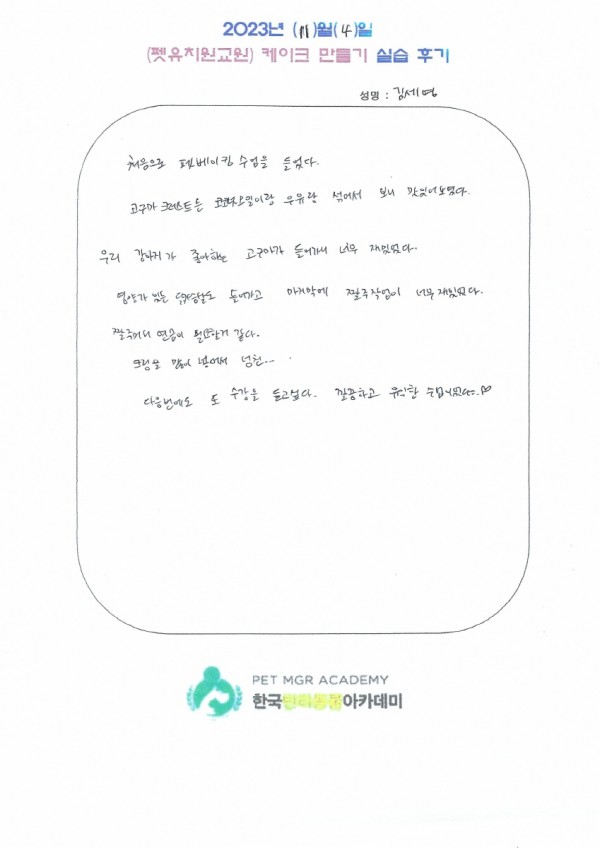 2023년 (11)월(4)일
(펫유치원교원) 케이크 만들기 실습 후기
성명 : 김세영
처음으로 펫베이킹 수업을 들었다.
고구마 코코넛오일이랑 우유랑 섞어서 보니 맛있어보였다.
우리 강아지가 좋아하는 고구마가 들어가서 너무 재밌었다.
영양가 있는 들어가고 마지막에 짤주작업이 너무 재밌었다.
짤주머니 연습이 필요할거 같다.
크림을 많이 넣어서 ...
다음번에도 또 수강을 듣고싶다. 깔끔하고 유익한 수업이었다. ♡
PET MGR ACADEMY
한국반려동물아카데미